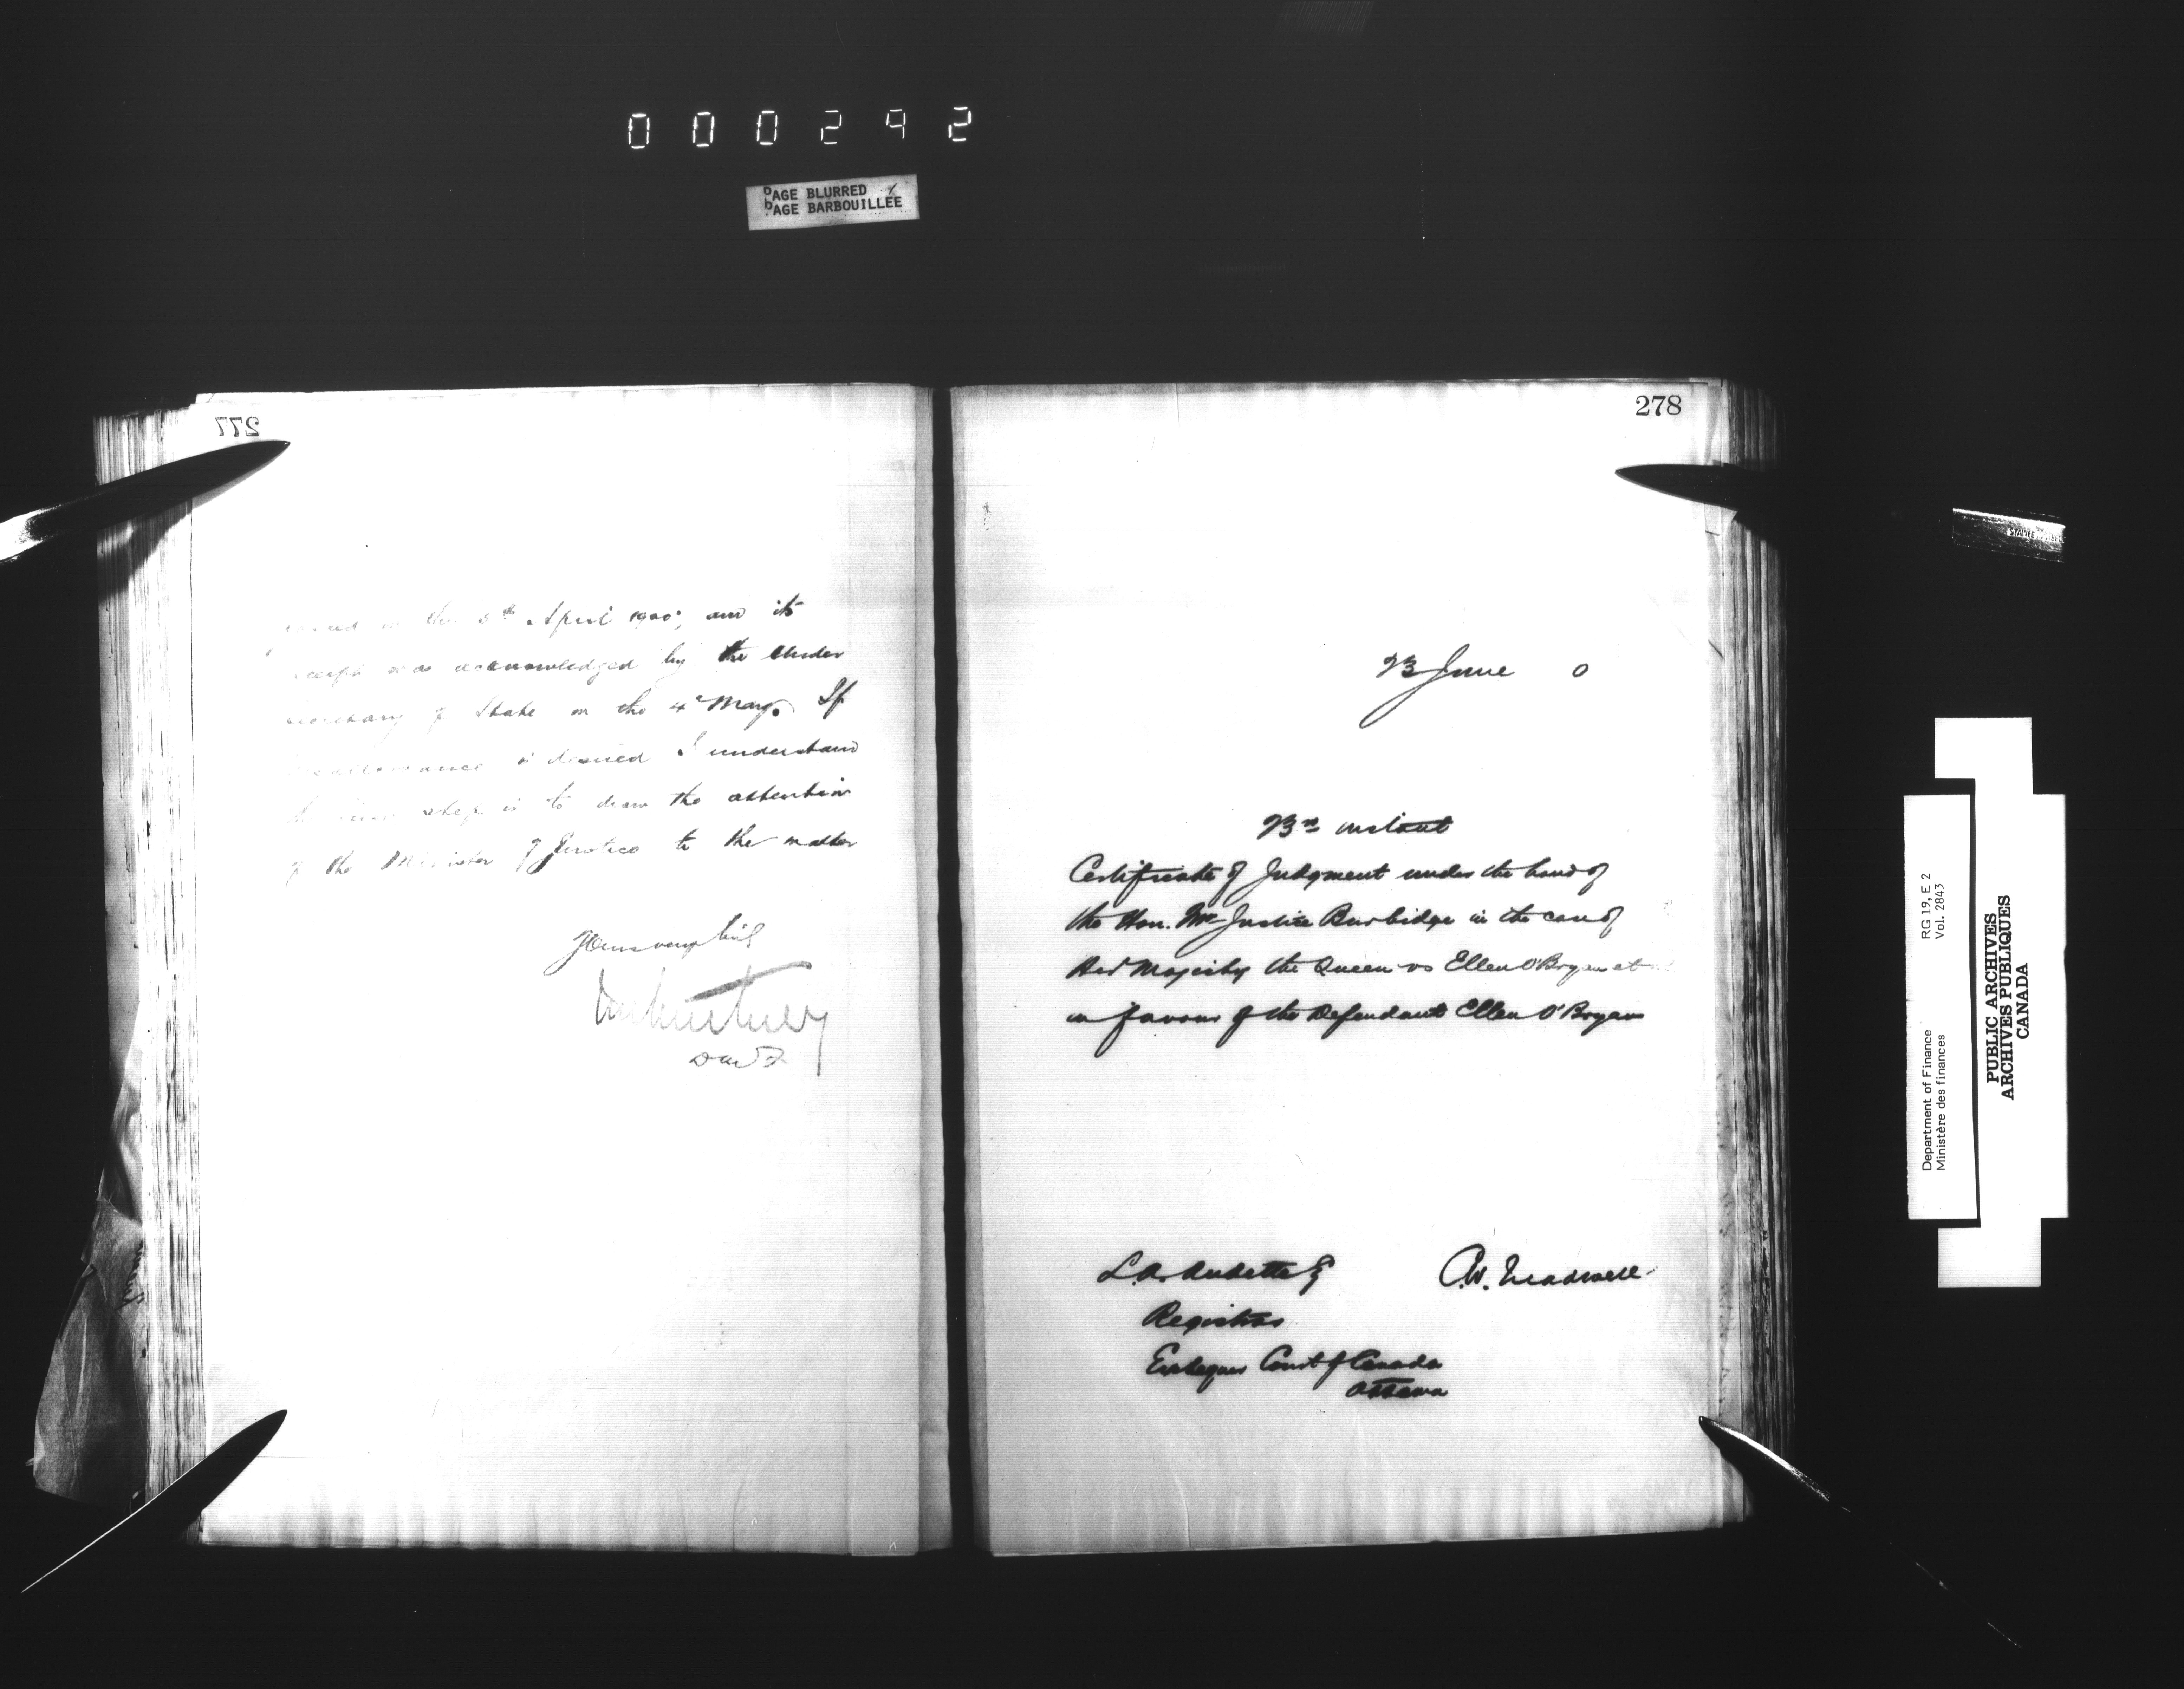 000292
PAGE BLURRED
PAGE BARBOUILLÉE
277
the 5th April 1900; and its
was acknowledged by the Under
Secretary of State on the 4th May. If
is desired I understand
step is to draw the attention
of the Minister of Justice to the matter
Yours very truly
DMF
278
23 June 0
23rd instant
Certificate of Judgment under the hand of
the Hon. Mr Justice Burbidge in the case of
Her Majesty the Queen vs Ellen O'Bryan et al
in favour of the Defendant Ellen O'Bryan
L.A. Audette Esq
C.W. Treadwell
Registrar
Exchequer Court of Canada
Ottawa
Department of Finance
Ministère des finances
RG 19, E 2
Vol. 2843
PUBLIC ARCHIVES
ARCHIVES PUBLIQUES
CANADA